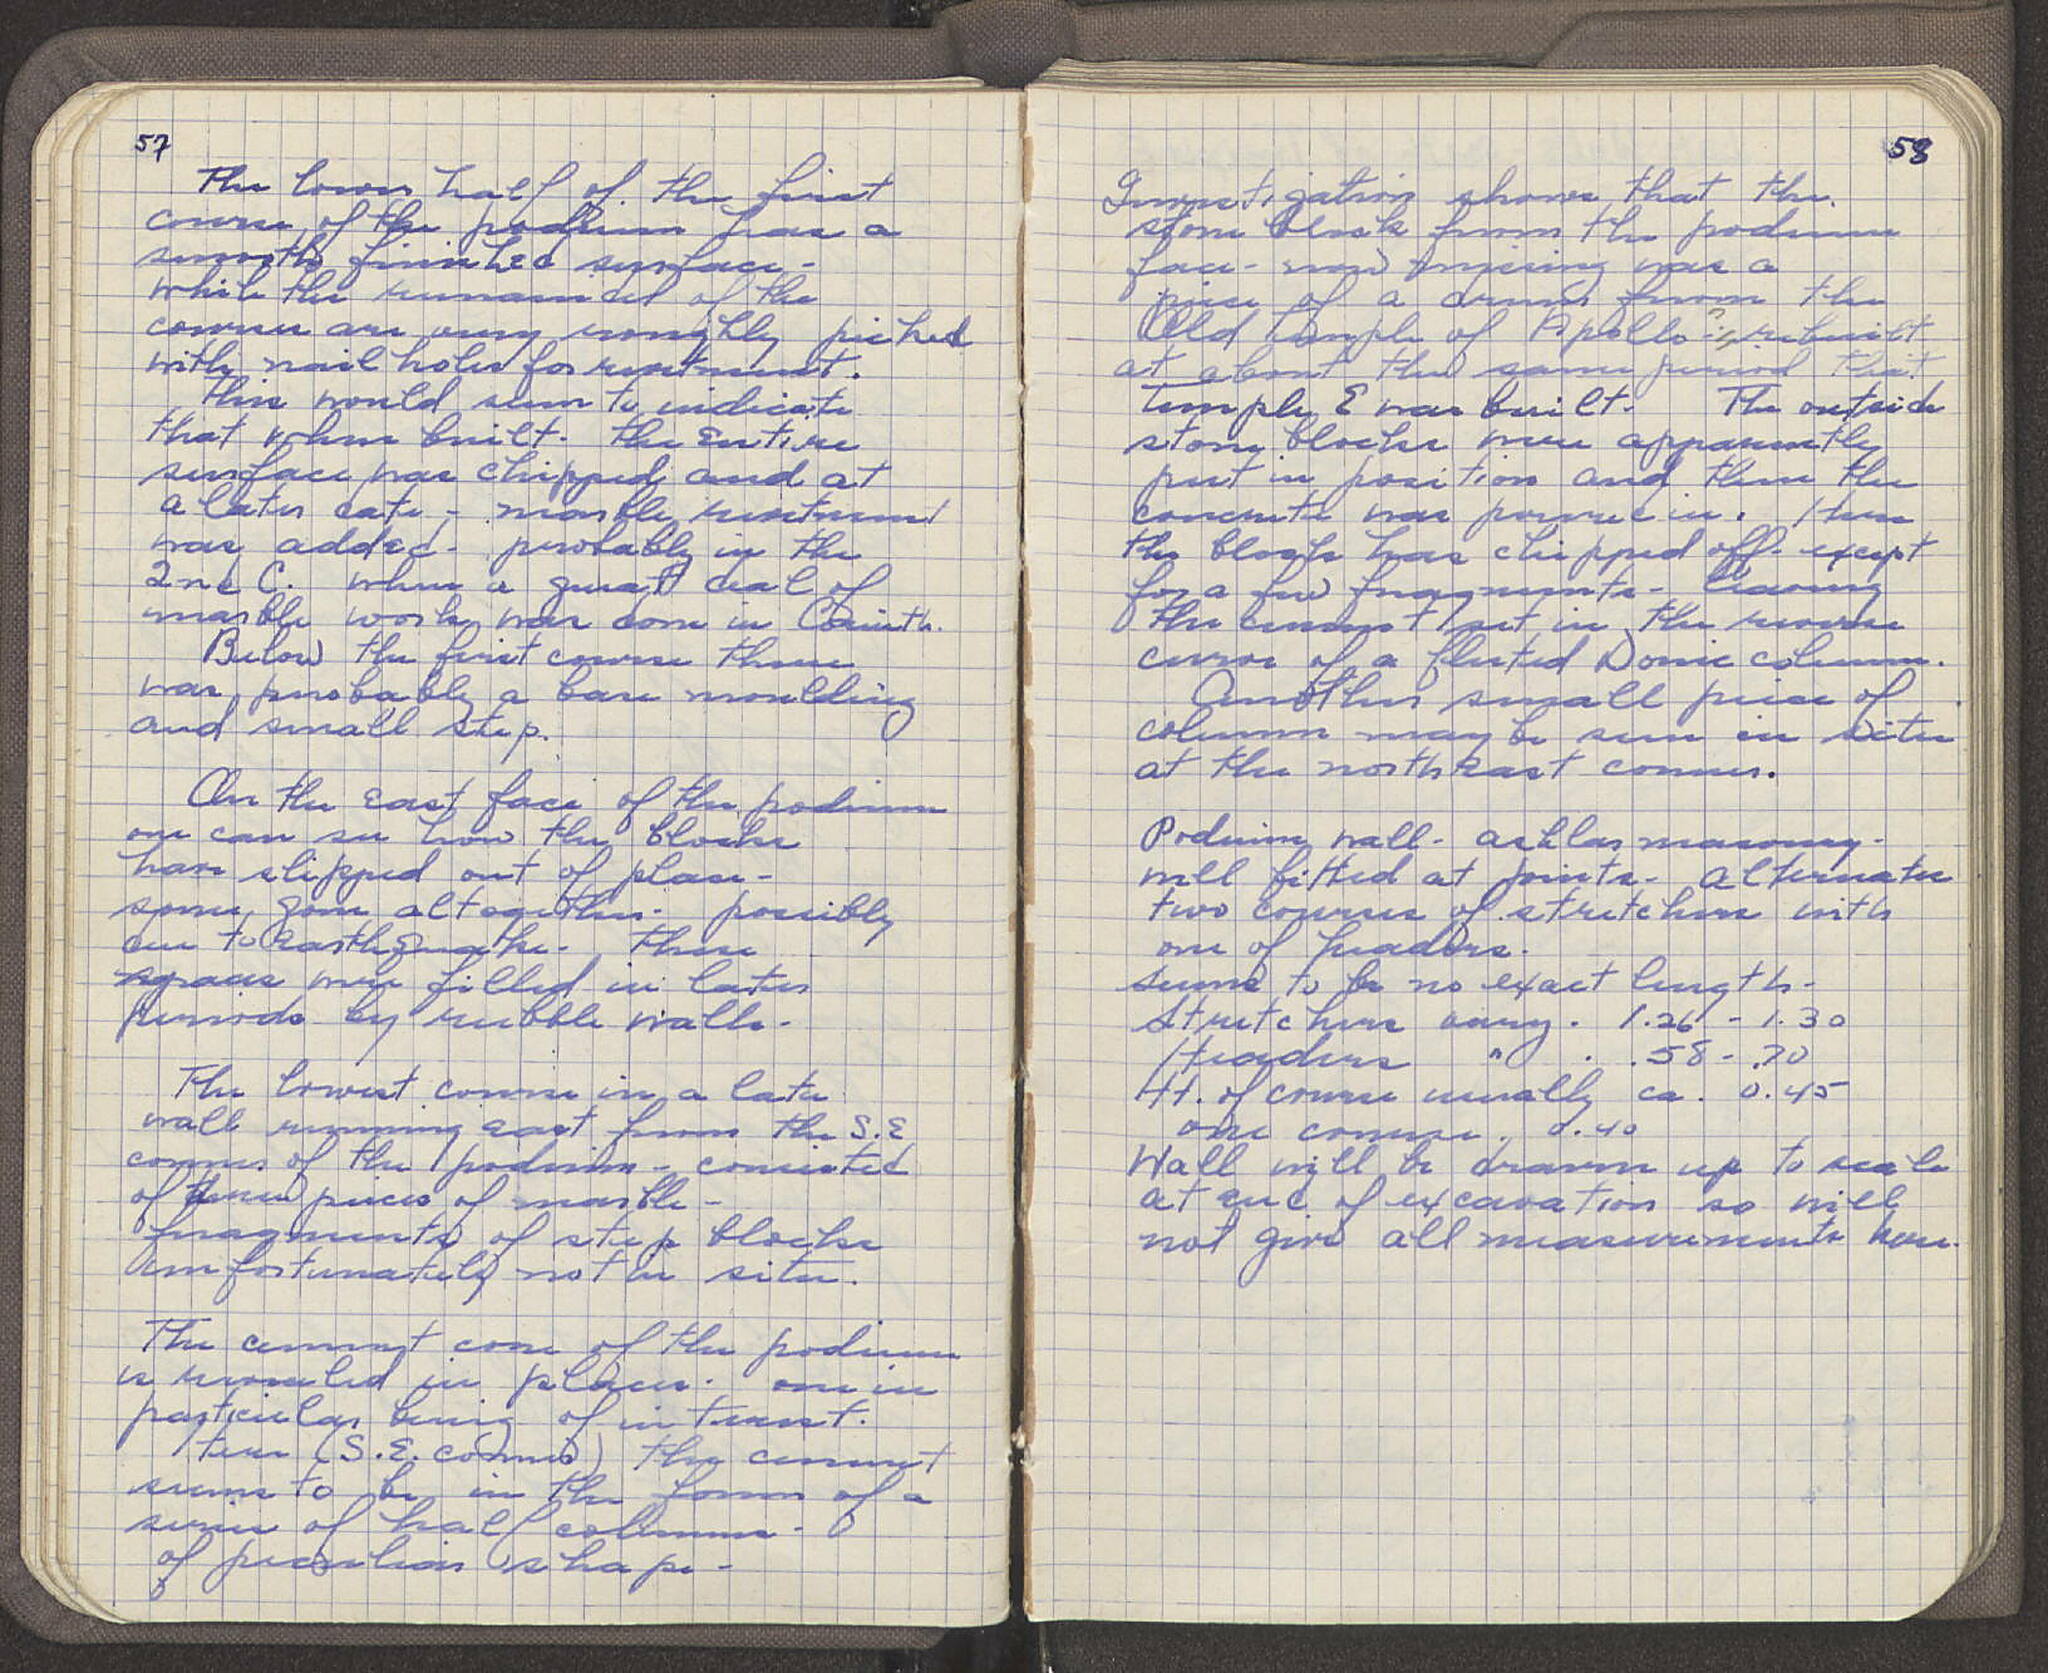 57
The lower half of the first
course of the podium has a
smooth finished surface -
while the remainder of the
courses are very roughly picked
with nail holes for revetment.
This would seem to indicate
that when built - the entire
surface was chipped and at
a later date - marble revetment
was added - probably in the
2nd C. when a great deal of
marble work was done in Corinth.
Below the first course there
was probably a base moulding
and small step.
On the east face of the podium
one can see how the blocks
have slipped out of place -
some gone altogether - possibly
due to Earthquake - These
spaces were filled in later
periods by rubble walls -
The lowest course in a late
wall running east from the S.E
corner of the podium - consisted
of three pieces of marble -
fragments of step blocks
unfortunately not in situ.
The cement core of the podium
is revealed in places - one in
particular being of interest.
Here (S.E. corner) the cement
seems to be in the form of a
series of half columns -
of peculiar shape -
58
Investigation shows that the
stone block from the podium
face - now missing was a
piece of a drum from the
Old Temple of Apollo - ? rebuilt
at about the same period that
Temple E was built. The outside
stone blocks were apparently
put in position and then the
concrete was poured in. Here
the block has chipped off - except
for a few fragments - leaving
the cement set in the reverse
curve of a fluted Doric column.
Another small piece of
column may be seen in situ
at the northeast corner.
Podium wall - ashlar masonry -
well fitted at joints - alternates
two courses of stretchers with
one of headers.
seems to be no exact length -
Stretchers vary . 1.26 - 1.30
Headers " . .58 - .70
Ht. of course usually ca. 0.45
one course . 0.40
Wall will be drawn up to scale
at end of excavation so will
not give all measurements here.